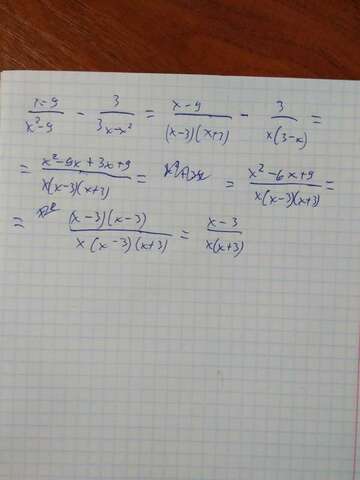 x-9/x²-9 - 3/3x-x² = x-9/(x-3)(x+3) - 3/x(3-x) =
= x²-9x+3x+9/x(x-3)(x+3) = = x²-6x+9/x(x-3)(x+3) =
= (x-3)(x-3)/x(x-3)(x+3) = x-3/x(x+3)